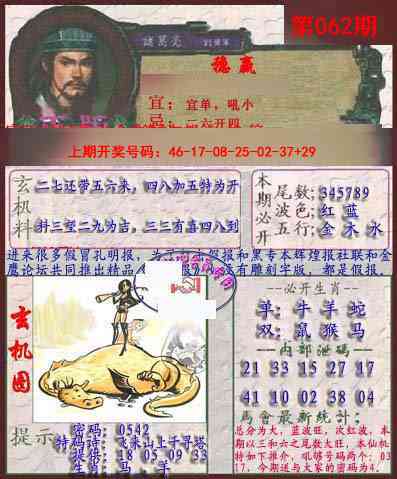 第062期
諸葛亮
稳赢
宜：宜单，吼小
忌：二六开四
上期开奖号码：46-17-08-25-02-37+29
玄机料
二七还带五六来，四八加五特为开
料三望二九为吉，三三有喜四八到
本期必开
尾数；345789
波色；红 蓝
五行；金 木 水
进来很多假冒孔明报，为了
假报和黑专本辉煌报社联和金
鹰论坛共同推出精品
没有雕刻字版，都是假报，
玄机图
必开生肖
单：牛 羊 蛇
双：鼠 猴 马
内部泄码
21 33 15 27 17
41 10 02 38 04
馬會最新統計；
总分为大，蓝波旺，次红波，本
期以三和六之尾数大旺，本仙机
特如下推介，吼够号码两个：03
17，今期送与大家的密码为4.
提示
密码；0542
特码话；飞来山上千寻塔
提供；18 05 09 33
生肖；马、羊